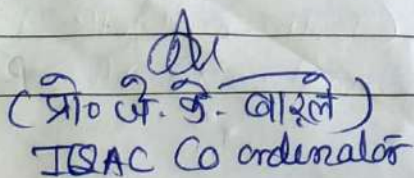 (प्रो० जे. के. बारले)
IQAC Co ordinator